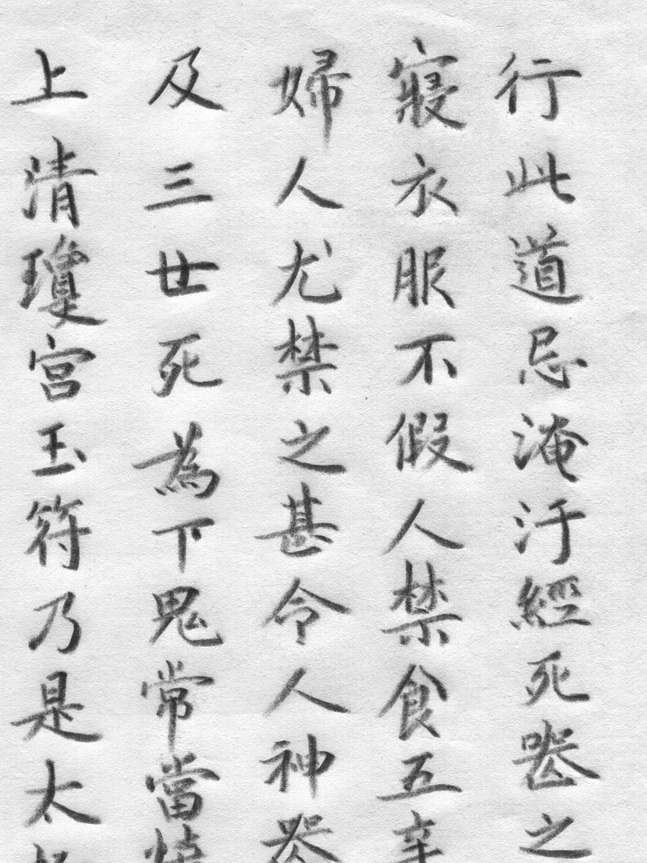 行此道忌淹汙經死喪之
寢衣服不假人禁食五辛
婦人尤禁之甚令人神喪
及三世死為下鬼常當燒
上清瓊宮玉符乃是太